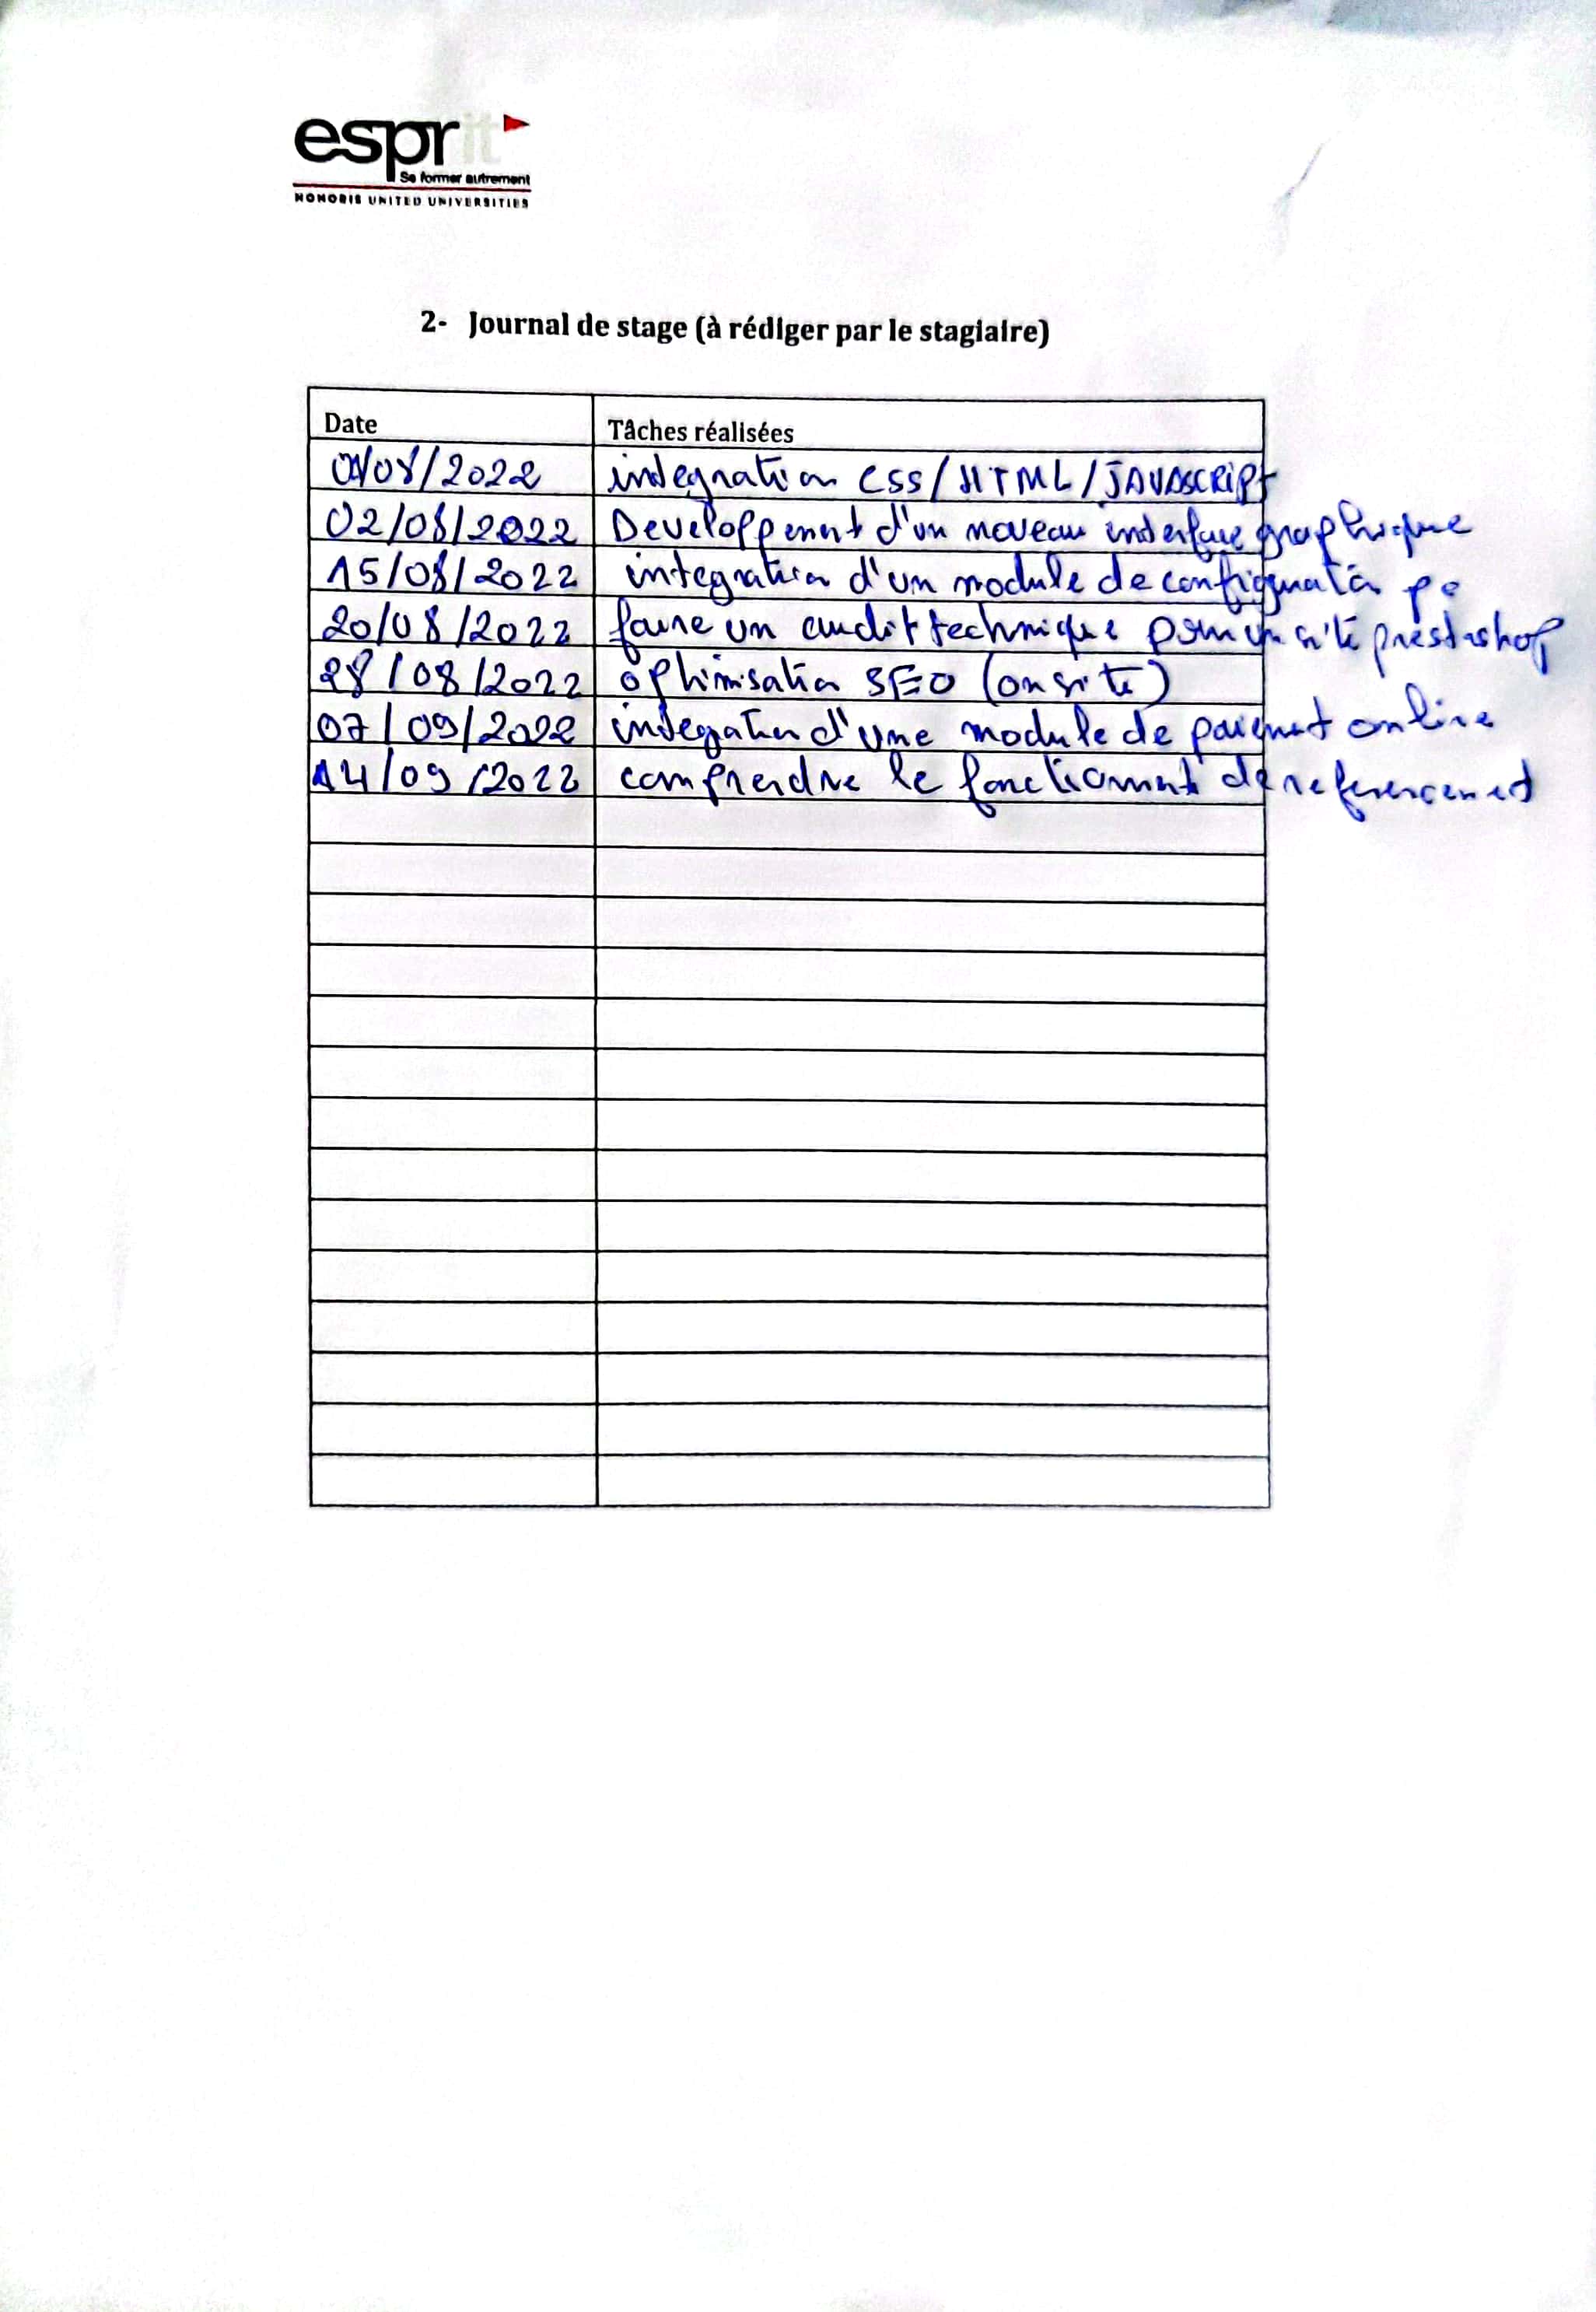 esprit
Se former autrement
HONORIS UNITED UNIVERSITIES
2- Journal de stage (à rédiger par le stagiaire)
Date Tâches réalisées
01/08/2022 integration CSS/HTML/JAVASCRIPT
02/08/2022 Developpement d'un noveau interface graphique
15/08/2022 integration d'un module de configuration
20/08/2022 faire un audit technique pour un site prestashop
28/08/2022 optimisation SEO (on site)
07/09/2022 integration d'une module de paiement online
14/09/2022 comprendre le fonctionnement de referencement